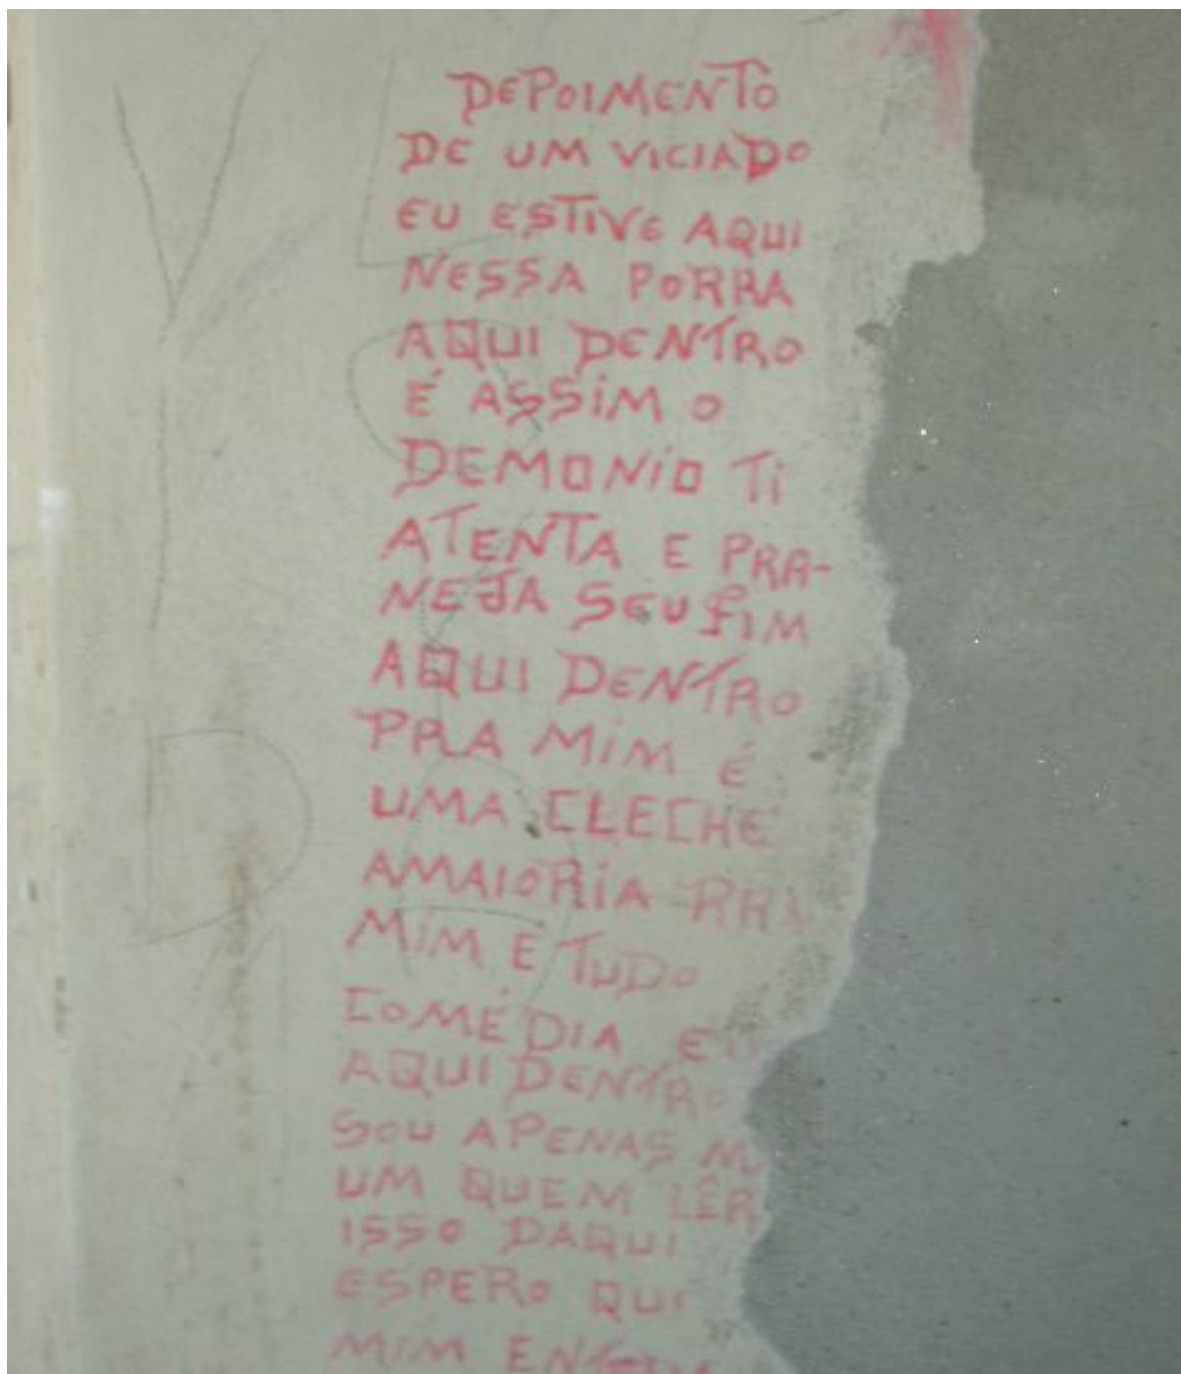 DEPOIMENTO
DE UM VICIADO
EU ESTIVE AQUI
NESSA PORRA
AQUI DENTRO
É ASSIM O
DEMONIO Ti
ATENTA E PRA-
NEJA SEU FIM
AQUI DENTRO
PRA MIM É
UMA CLECHE
AMAIORIA PRA
MIM É TUDO
COMÉDIA EU
AQUI DENTRO
SOU APENAS
UM QUEM LÊR
ISSO DAQUI
ESPERO QUI
MIM